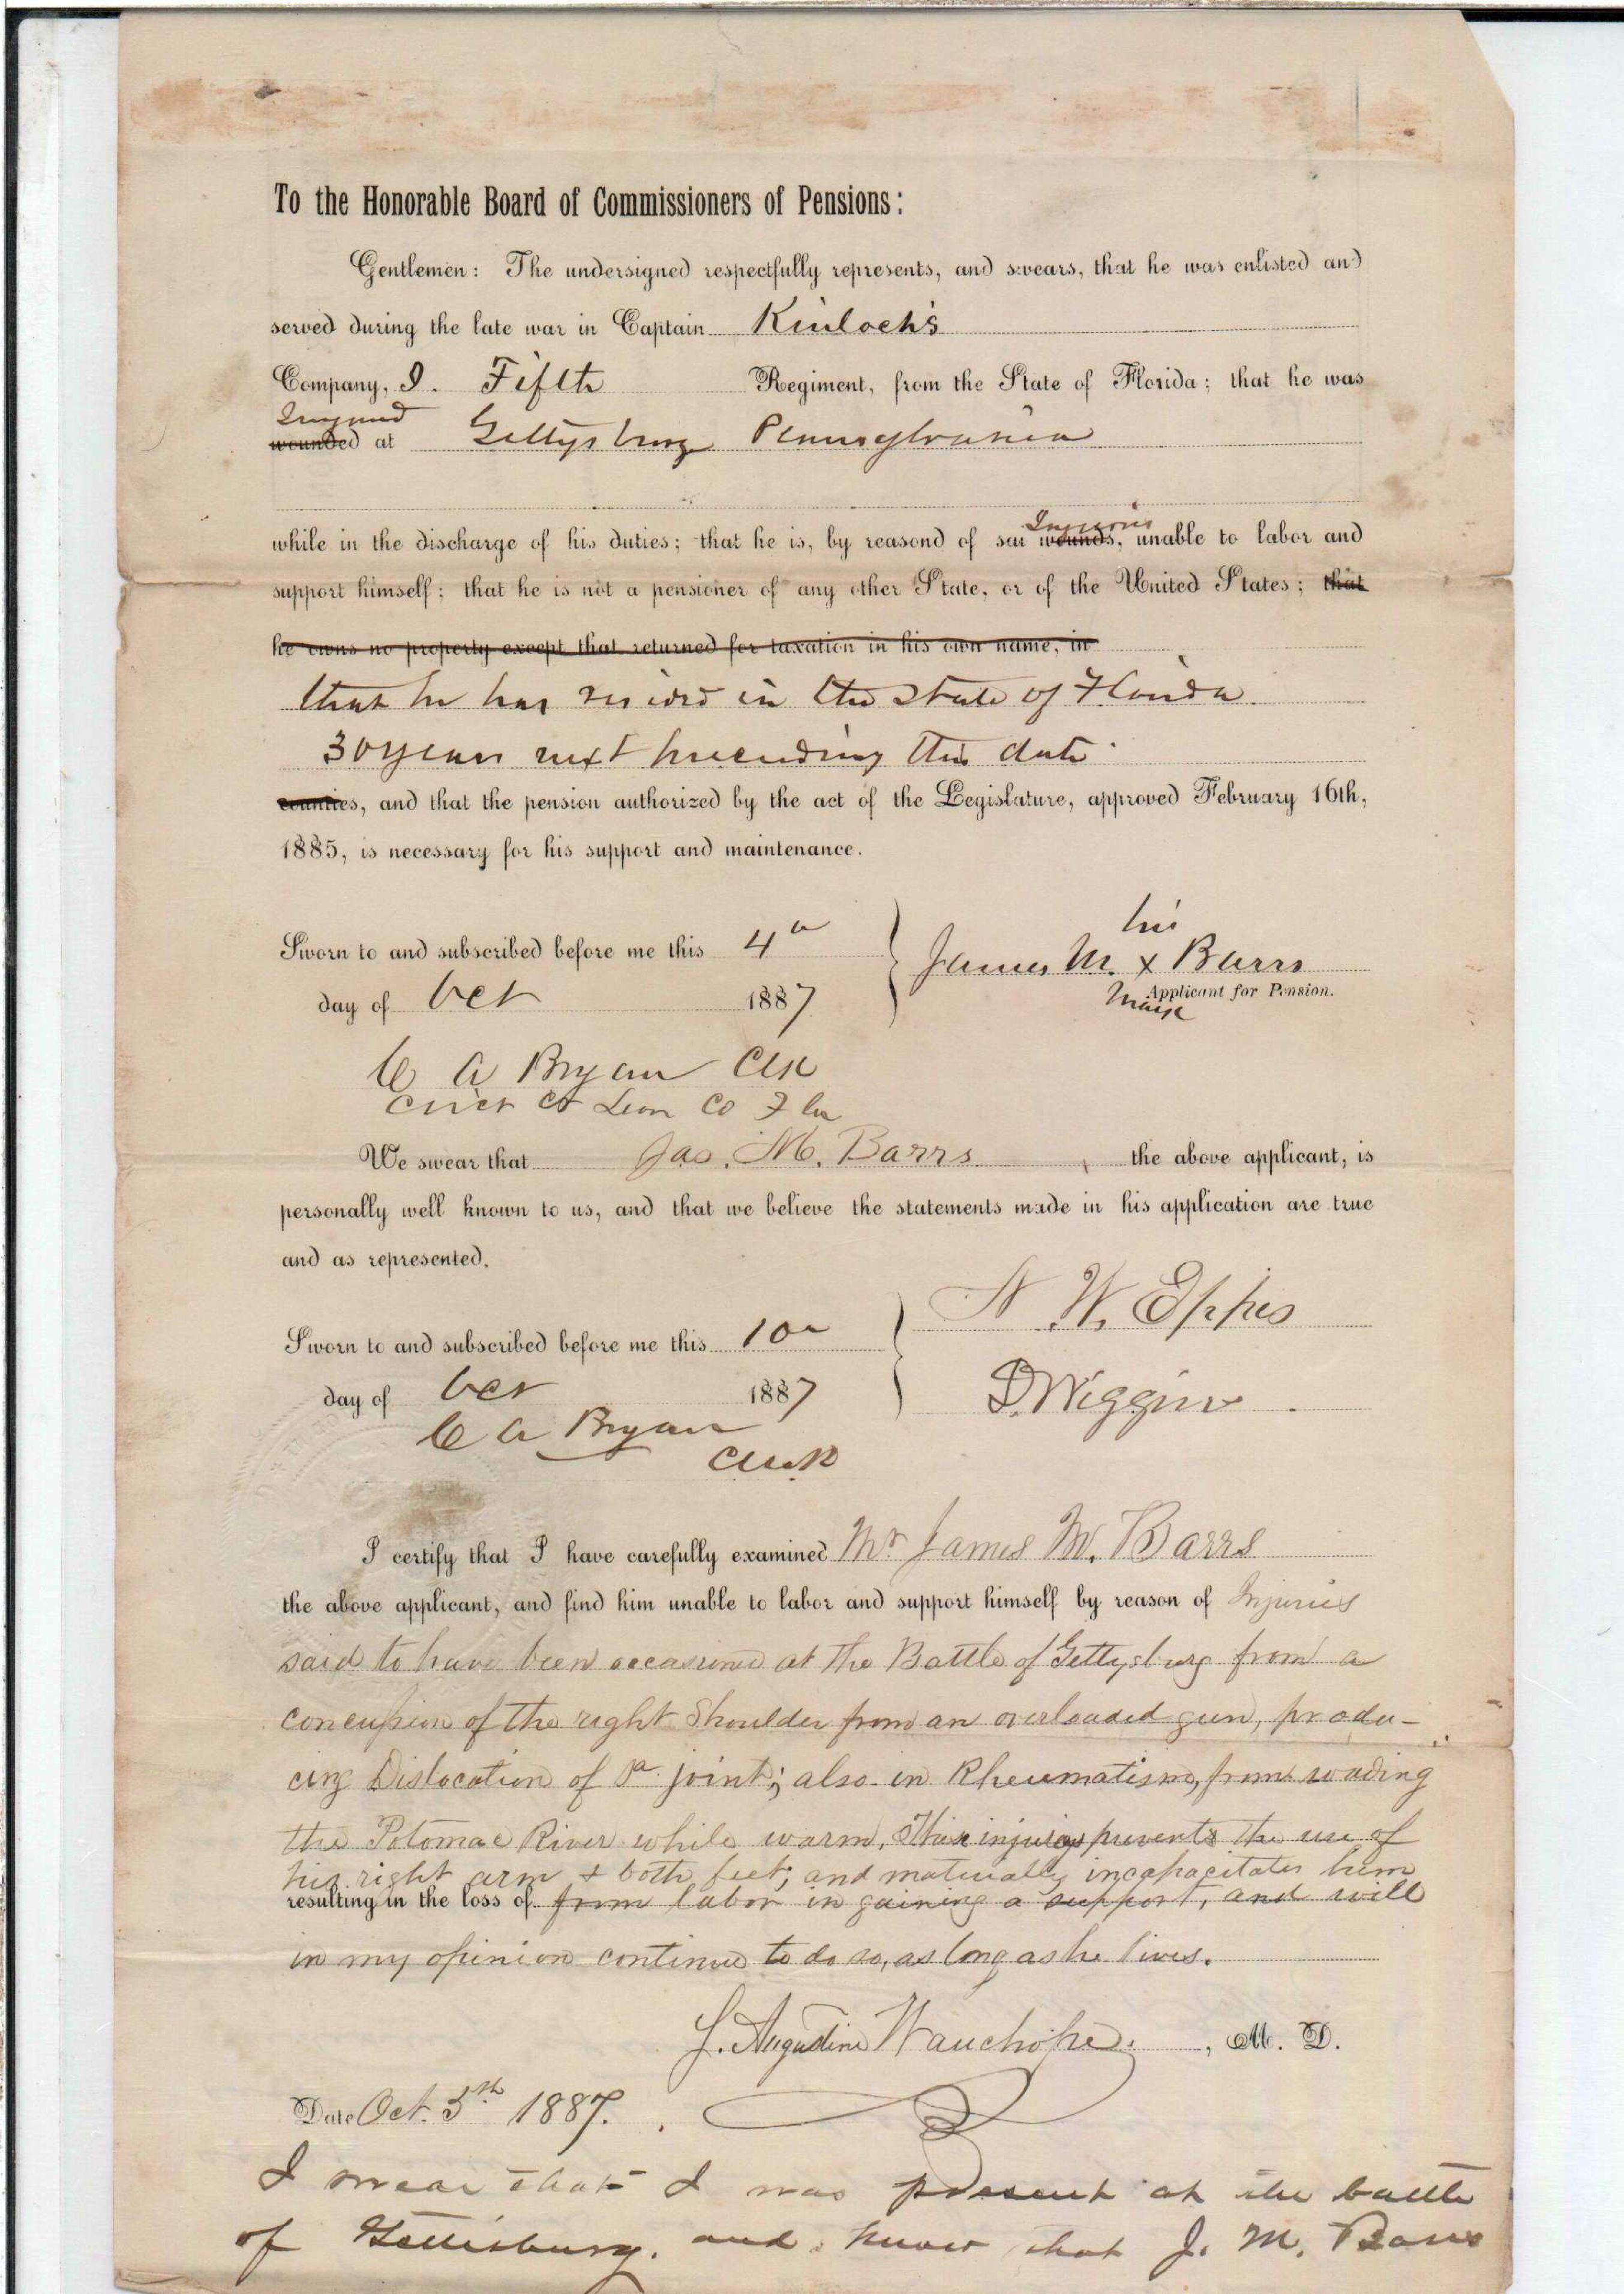 To the Honorable Board of Commissioners of Pensions:
Gentlemen: The undersigned respectfully represents, and swears, that he was enlisted and
served during the late war in Captain Kinloch's
Company, I. Fifth Regiment, from the State of Florida; that he was
Injured
wounded at Gettysburg Pennsylvania
while in the discharge of his duties; that he is, by reasond of sai wounds, unable to labor and
support himself; that he is not a pensioner of any other State, or of the United States; that
he owns no property except that returned for taxation in his own name, in
that he has resided in the State of Florida
30 years next preceeding this date.
counties, and that the pension authorized by the act of the Legislature, approved February 16th,
1885, is necessary for his support and maintenance.
Sworn to and subscribed before me this 4th
day of Oct 1887
his
James M. x Barrs
Applicant for Pension.
mark
C A Bryan Clk
Circt Ct Leon Co Fla
We swear that Jas. M. Barrs, the above applicant, is
personally well known to us, and that we believe the statements made in his application are true
and as represented.
Sworn to and subscribed before me this 10
day of Oct 1887
N. W. Eppes
D. Wiggins
C A Bryan
Clerk
I certify that I have carefully examined Mr James M. Barrs
the above applicant, and find him unable to labor and support himself by reason of Injuries
said to have been occasioned at the Battle of Gettysburg from a
concussion of the right Shoulder from an overloaded gun, produ-
cing Dislocation of joint; also in Rheumatism, from wading
the Potomac River while warm. This injury prevents the use of
his right arm & both feet; and materially incapacitates him
resulting in the loss of from labor in gaining a support, and will
in my opinion continue to do so, as long as he lives.
J. Augustine Wauchope, M. D.
Date Oct. 5th 1887.
I swear that I was present at the battle
of Gettisburg. and know that J. M. Barrs